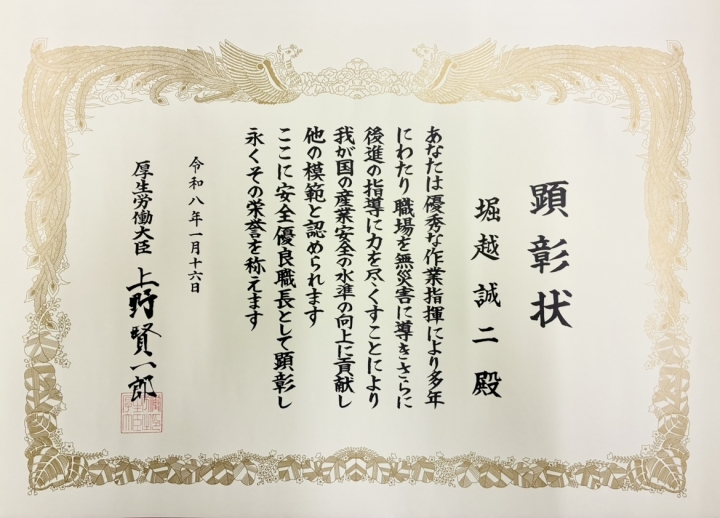 顕彰状
堀越誠二殿
あなたは優秀な作業指揮により多年
にわたり職場を無災害に導きさらに
後進の指導に力を尽くすことにより
我が国の産業安全の水準の向上に貢献し
他の模範と認められます
ここに安全優良職長として顕彰し
永くその栄誉を称えます
令和八年一月十六日
厚生労働大臣 上野賢一郎